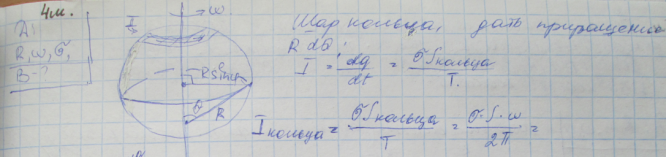 4м.
Д:
R, ω, σ,
B-?
I
ω
R sinθ
θ
R
Шар кольца, дать приращение
R dθ
I = dq/dt = σSкольца/T.
Iкольца = σSкольца/T = σ·S·ω/2π =